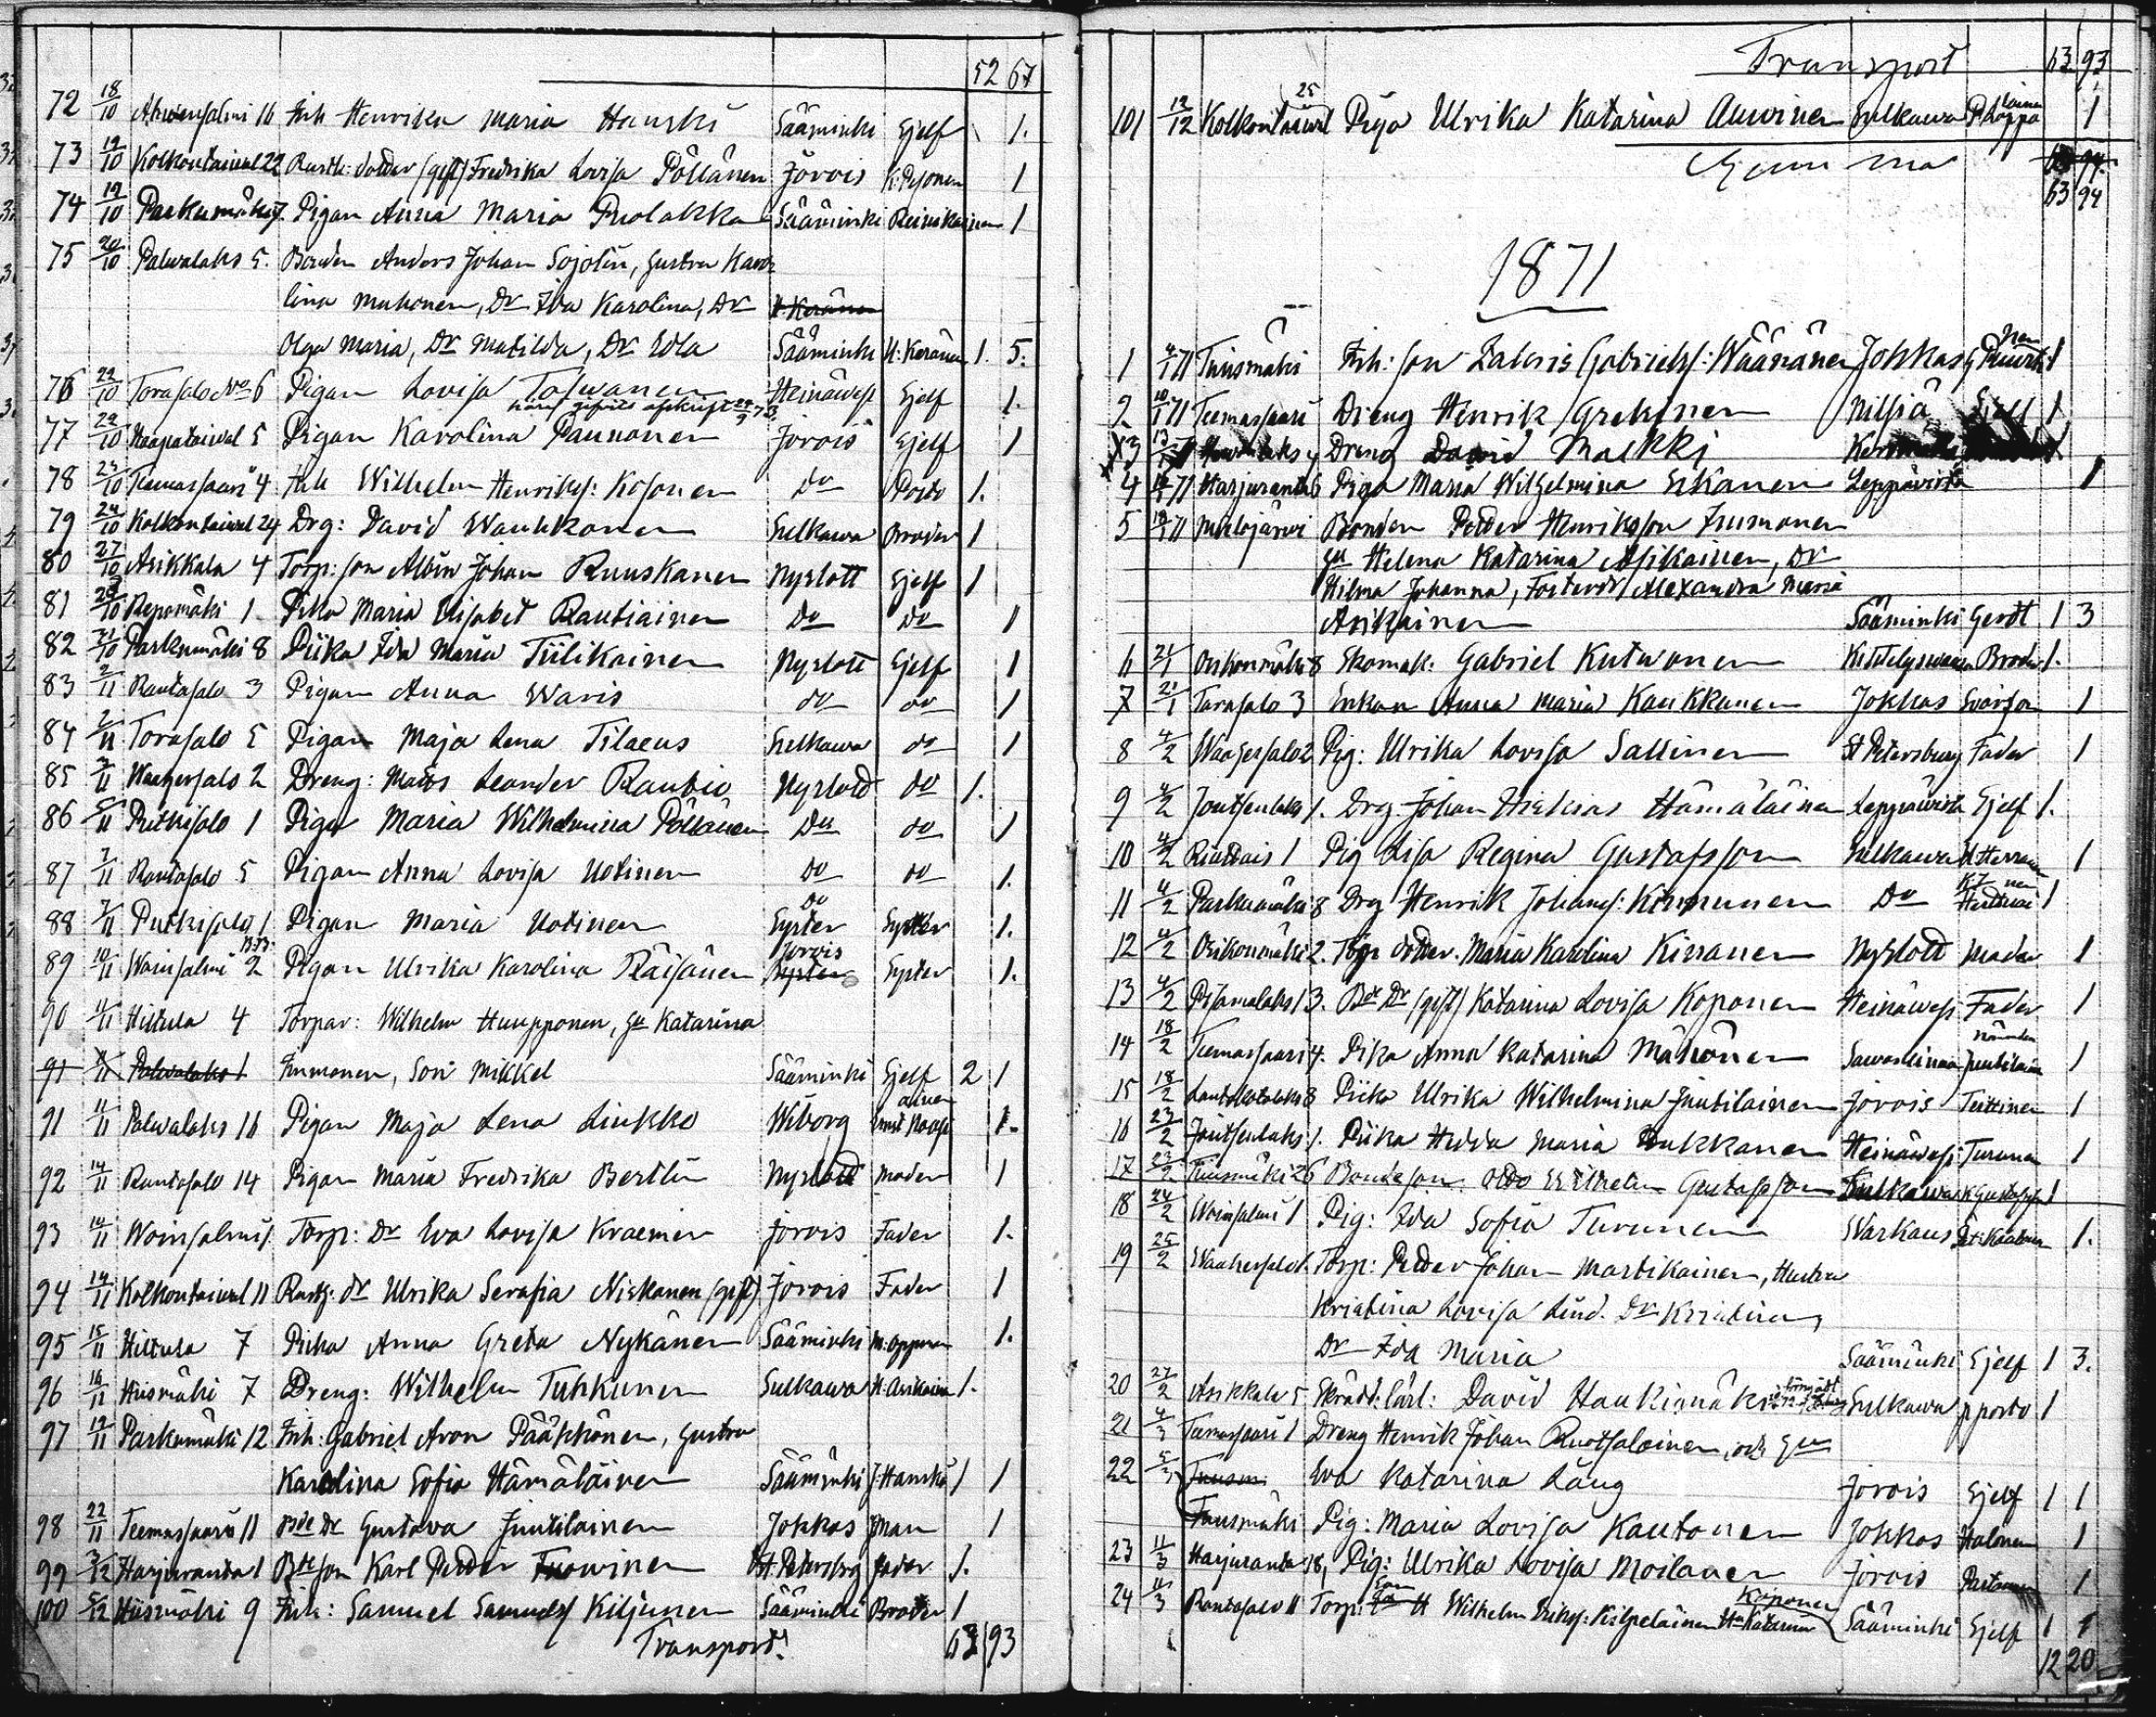 52 67
72 18/10 Ahvensalmi 16 Inh Henrika Maria Hauski Sääminki Sjelf 1.
73 19/10 Kolkontaival 22 Rusth: dotter (gift) Fredrika Lovisa Pöllänen Jorois K: Pesonen 1
74 19/10 Parkumäki 7. Pigan Anna Maria Puolakka Sääminki Reinikainen 1
75 20/10 Palvalaks 5. Bonden Anders Johan Sojolin, hustru Karo-
lina Muhonen, Dr Ida Karolina, Dr
Olga Maria, Dr Matilda, Dr Edla Sääminki H: Keränen 1. 5.
76 22/10 Torasalo No 6 Pigan Lovisa Toivanen Heinävesi Sjelf 1.
77 22/10 Haapataival 5 Pigan Karolina Paunonen Jorois Sjelf 1
78 23/10 Teemassaari 4 Inh Wilhelm Henriks: Kosonen Do Posto 1.
79 24/10 Kolkontaival 24 Drg: David Wauhkonen Sulkawa Broder 1
80 27/10 Asikkala 4 Torp: son Albin Johan Ruuskanen Nyslott Sjelf 1
81 29/10 Repomäki 1 Pika Maria Elisabet Rautiainen Do Do 1
82 31/10 Parkumäki 8 Piika Ida Maria Tiilikainen Nyslott Sjelf 1
83 2/11 Rantasalo 3 Pigan Anna Waris do do 1
84 2/11 Torasalo 5 Pigan Maja Lena Tilaeus Sulkawa do 1
85 3/11 Waahersalo 2 Dreng: Mats Leander Rautio Nyslott do 1.
86 5/11 Pitkisalo 1 Pigan Maria Wilhelmina Pöllänen Do do 1
87 7/11 Rantasalo 5 Pigan Anna Lovisa Uotinen do do 1.
88 7/11 Putkisalo 1 Pigan Maria Uotinen do Syster Syster 1.
89 10/11 Woinsalmi 2 Pigan Ulrika Karolina Räisänen Jorois Syster 1.
90 11/11 Hiltula 4 Torpar: Wilhelm Huupponen, hu Katarina
91 11/11 Palvalaks 1 Immonen, Son Mikkel Sääminki Sjelf 2 1
91 11/11 Palvalaks 16 Pigan Maja Lena Liukko Wiborg 1.
92 14/11 Rantasalo 14 Pigan Maria Fredrika Bertlin Nyslott Moder 1
93 14/11 Woinsalmi 1 Torp: Dr Eva Lovisa Kraemer Jorois Fader 1.
94 14/11 Kolkontaival 11 Rusth: dr Ulrika Serafia Niskanen (gift) Jorois Fader 1
95 15/11 Hiltula 7 Pika Anna Greta Nykänen Sääminki 1.
96 16/11 Hiismäki 7 Dreng: Wilhelm Tukkunen Sulkawa H: Asikainen 1.
97 19/11 Parkumäki 12 Inh: Gabriel Aron Pääkkönen, hustru
Karolina Sofia Hämäläinen Sääminki J: Hanski 1 1
98 22/11 Teemassaari 11 Bde Dr Gustava Juutilainen Jokkas Man 1
99 3/12 Harjuranta 1 Bde son Karl Petter Tuovinen St. Petersbrg Fader 1.
100 5/12 Hiismäki 9 Inh: Samuel Samuels Kiljunen Sääminki Broder 1
Transport. 63 93
Transport 63 93
101 12/12 Kolkontaival 25 Piga Ulrika Katarina Auvinen Sulkawa 1
Summa 63 94
63 94
1871
1 4/1 71 Tuusmäki Inh: son Zakris Gabriels: Wäänänen Jokkas 1
2 10/1 71 Teemassaari Dreng Henrik Grekinen Nilsiä Sjelf 1
3 13/1 Dreng David Malkki
4 71 Harjuranta 6 Piga Maria Wilhelmina Eskanen Leppävirta 1
5 71 Malojärvi Bonden Petter Henriksson Immonen
hu Helena Katarina Asikainen, Dr
Hilma Johanna, Fosterdr Alexandra Maria
Asikainen Sääminki Gerdt 1 3
6 24/1 Oskonmäki 8 Skomak: Gabriel Kutvonen Broder 1.
7 21/1 Torasalo 3 Enkan Anna Maria Kaukkanen Jokkas Svärson 1
8 4/2 Waahersalo 2 Pig: Ulrika Lovisa Sallinen St Petersburg Fader 1
9 4/2 Joutsenlaks 1. Drg Johan Hiskias Hämäläinen Leppävirta Sjelf 1.
10 4/2 Ruottais 1 Pig Lisa Regina Gustafsson Sulkawa 1
11 4/2 Parkumäki 8 Drg Henrik Johans: Kinnunen Do 1
12 4/2 Oskonmäki 2. Torp dotter Maria Karolina Kirranen Nyslott Moder 1
13 4/2 Pisamalaks 13. Bde Dr (gift) Katarina Lovisa Koponen Heinävesi Fader 1
14 18/2 Teemassaari 4. Pika Anna Katarina Mähönen Juutilain 1
15 18/2 Lautakotalaks 8 Piika Ulrika Wilhelmina Juutilainen Jorois Teittinen 1
16 23/2 Joutsenlaks 1. Piika Hedda Maria Pukkanen Heinävesi Turunen 1
17 23/2 Tuusmäki 26 Bondeson Otto Wilhelm Gustafsson Sulkawa K Gustafsson 1
18 24/2 Woinsalmi 1 Pig: Ida Sofia Turunen Warkaus 1.
19 25/2 Waahersalo 1. Torp: Petter Johan Martikainen, Hustru
Kristina Lovisa Lind. Dr Kristina,
Dr Ida Maria Sääminki Sjelf 1 3.
20 27/2 Asikkala 5 Skrädd: lärl: David Haukimäki Sulkawa p posto 1
21 4/3 Teemassaari 1 Dreng Henrik Johan Ruotsalainen, och hu
22 5/3 Tuusm Eva Katarina Läug Jorois Sjelf 1 1
Tuusmäki Pig: Maria Lovisa Kautonen Jokkas Halonen 1
23 11/3 Harjuranta 18, Pig: Ulrika Lovisa Moilanen Jorois Partanen 1
24 11/3 Rantasalo 11 Torp: Son Wilhelm Eriks: Kilpeläinen Hu Katarina Koponen Sääminki Sjelf 1 1
12 20